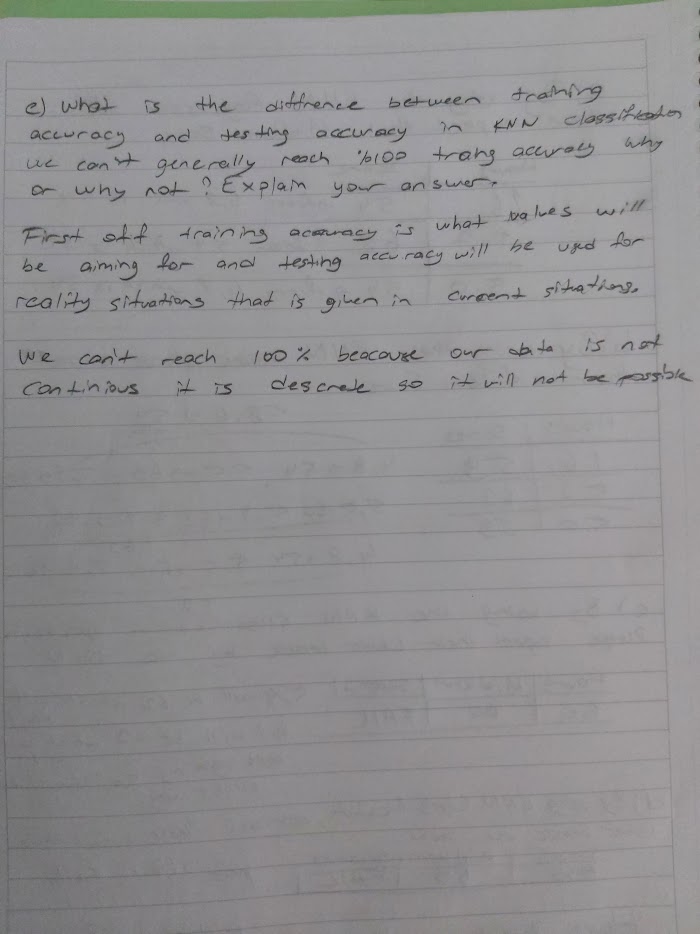 e) what is the diffrence between training
accuracy and testing accuracy in KNN classification
we can't generally reach %100 trang accuracy why
or why not? Explain your answer.
First off training accuracy is what values will
be aiming for and testing accuracy will be used for
reality situations that is given in current situations.
we can't reach 100% beacouse our data is not
continious it is descrete so it will not be possible